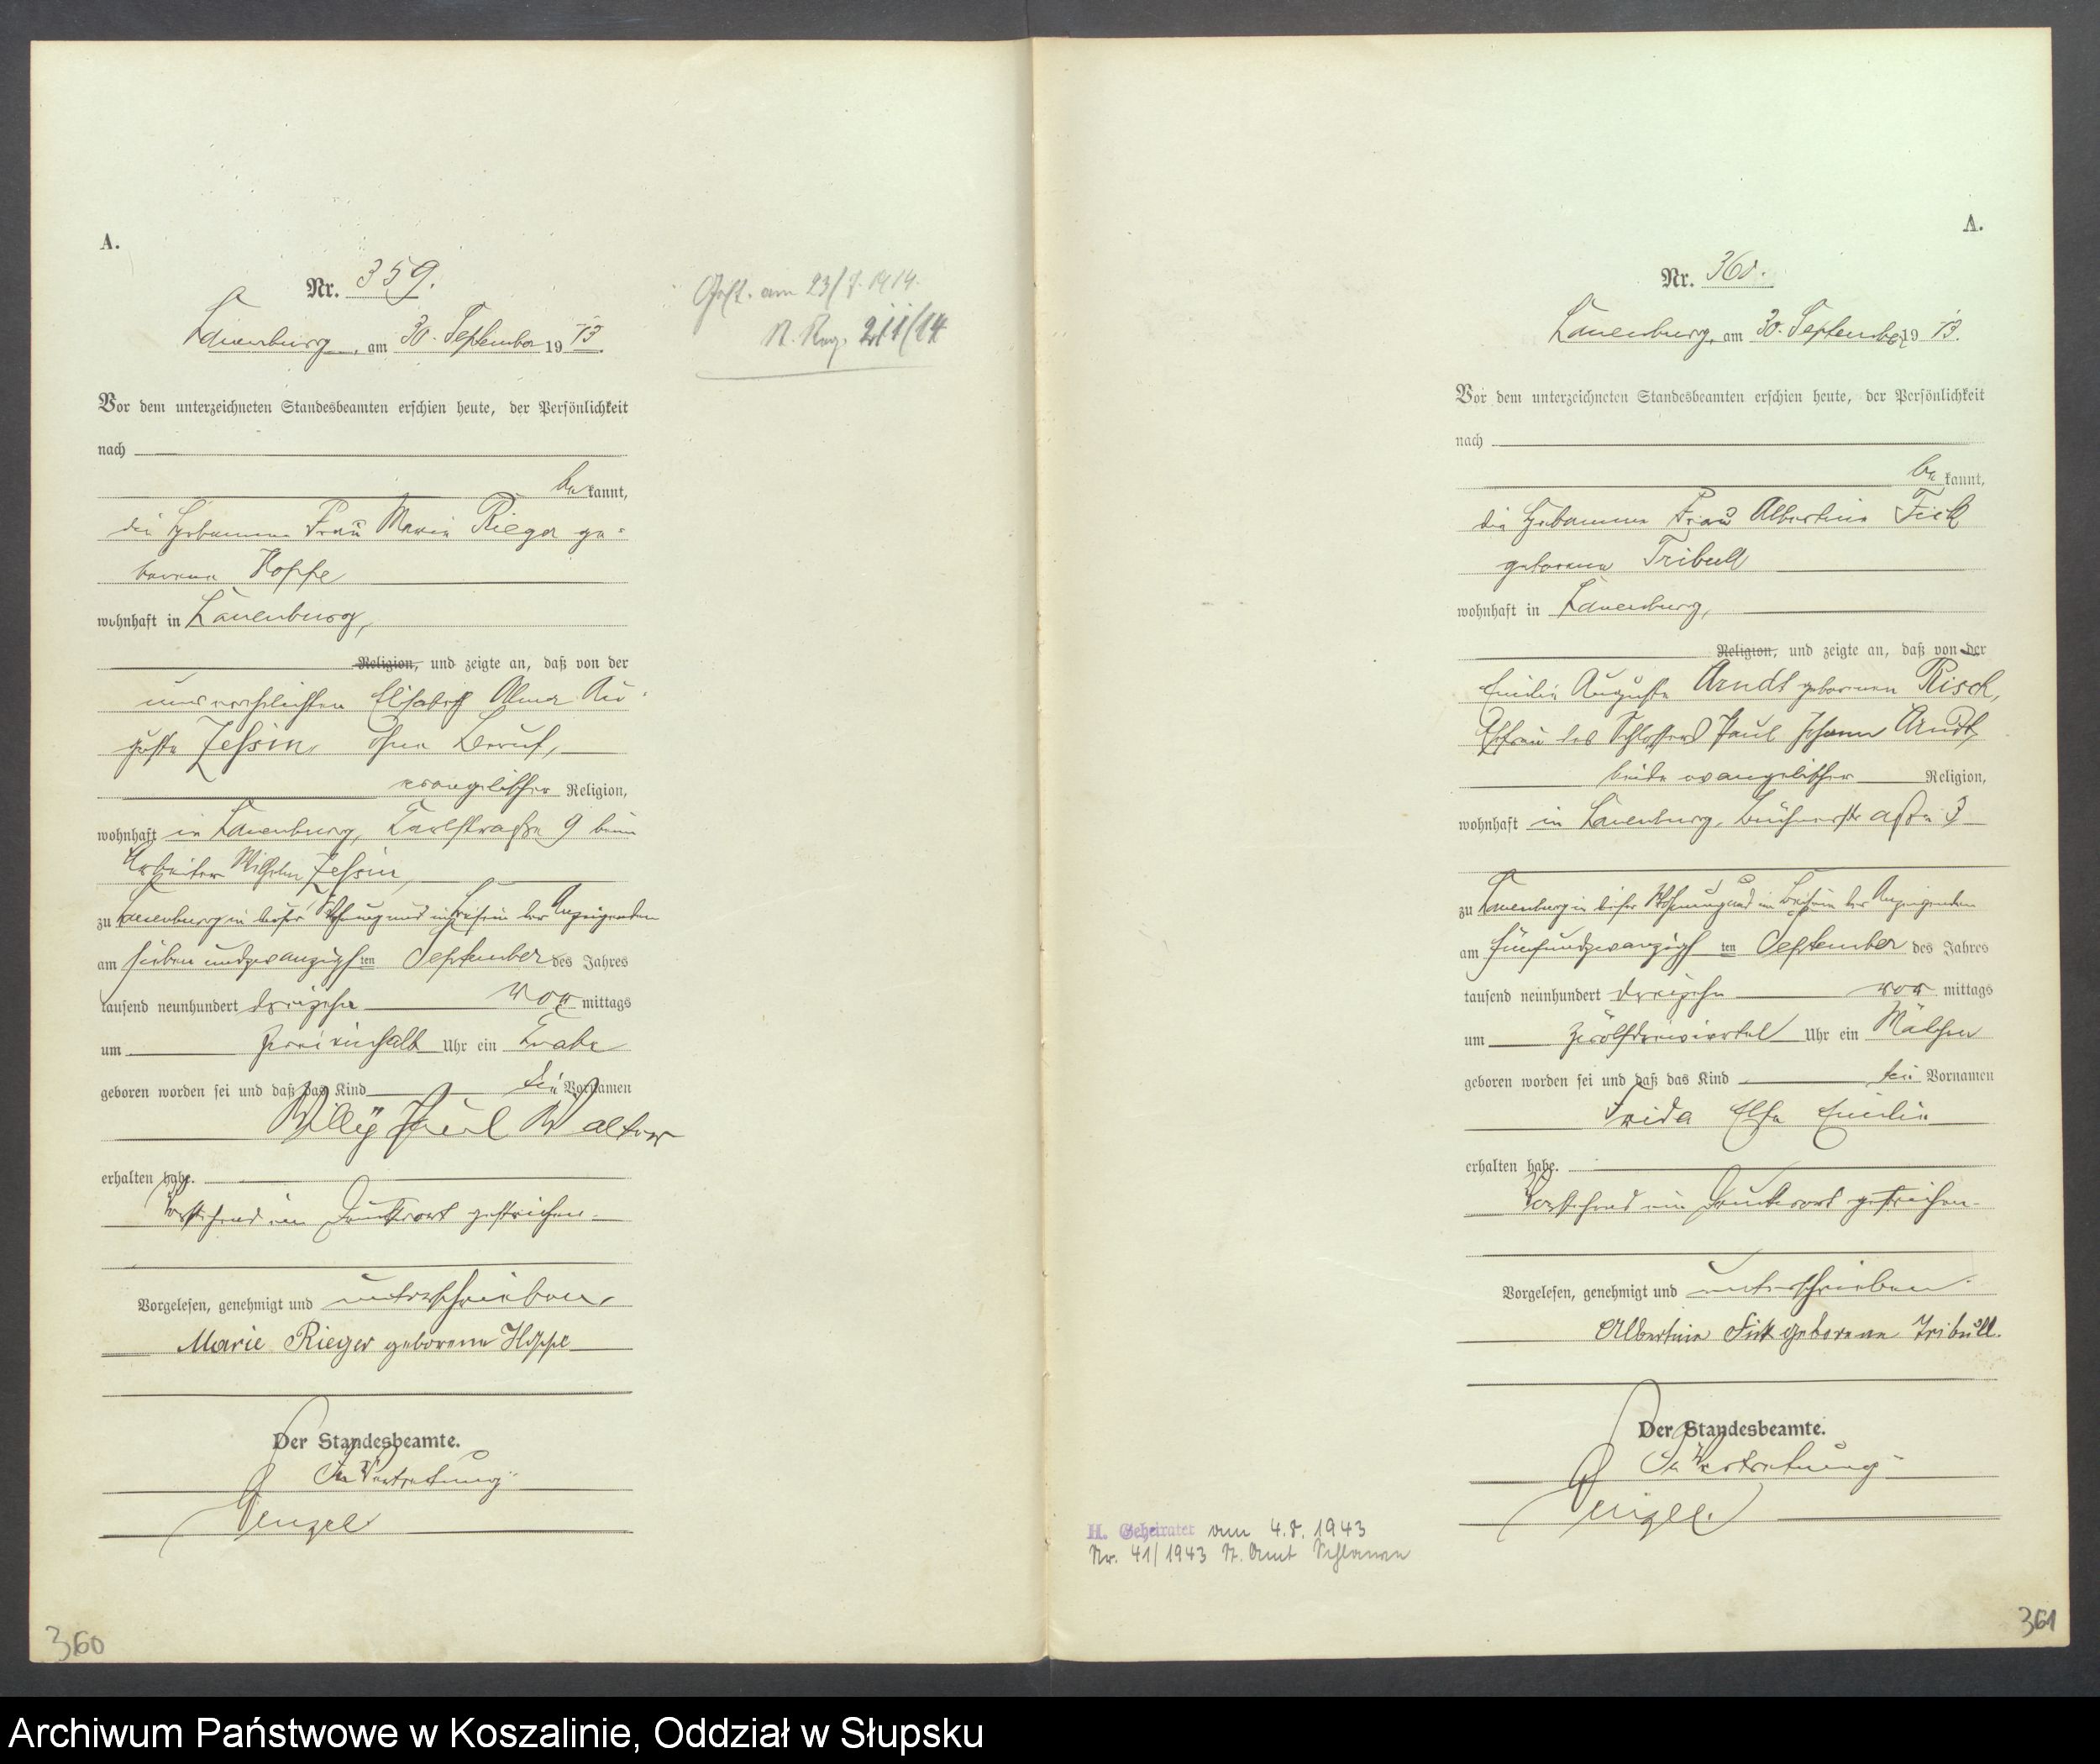 A.
Nr. 359.
Lauenburg, am 30. September 19 13.
Vor dem unterzeichneten Standesbeamten erschien heute, der Persönlichkeit
nach
be kannt,
die Hebamme Frau Marie Rieger ge-
borene Hoppe
wohnhaft in Lauenburg,
Religion, und zeigte an, daß von der
unverehelichten Elisabeth Alma Au-
guste Jessin, ohne Beruf,
evangelischer Religion,
wohnhaft in Lauenburg, Karlstraße 9 beim
Arbeiter Wilhelm Jessin,
zu Lauenburg in dieser Wohnung und im Beisein der Anzeigenden
am siebenundzwanzigsten September des Jahres
tausend neunhundert dreizehn vor mittags
um zweieinhalb Uhr ein Knabe
geboren worden sei und daß das Kind die Vornamen
Willy Paul Walter
erhalten habe.
Vorstehend ein Druckwort gestrichen.
Vorgelesen, genehmigt und unterschrieben
Marie Rieger geborene Hoppe
Der Standesbeamte.
In Vertretung
Genzel
360
Gest. am 23/7. 1914.
St. Reg. 211/14
A.
Nr. 360.
Lauenburg, am 30. September 19 13.
Vor dem unterzeichneten Standesbeamten erschien heute, der Persönlichkeit
nach
be kannt,
die Hebamme Frau Albertine Fick
geborene Tribull
wohnhaft in Lauenburg,
Religion, und zeigte an, daß von der
Emilie Auguste Arndt geborenen Risch,
Ehefrau des Schlossers Paul Johann Arndt,
beide evangelischer Religion,
wohnhaft in Lauenburg, straße 3
zu Lauenburg in dieser Wohnung und im Beisein der Anzeigenden
am fünfundzwanzigsten September des Jahres
tausend neunhundert dreizehn vor mittags
um zwölfdreiviertel Uhr ein Mädchen
geboren worden sei und daß das Kind die Vornamen
Frida Elsa Emilie
erhalten habe.
Vorstehend ein Druckwort gestrichen.
Vorgelesen, genehmigt und unterschrieben
Albertine Fick geborene Tribull.
Der Standesbeamte.
In Vertretung
Genzel.
H. Geheiratet am 4.8.1943
Nr. 41/1943 St. Amt Schlawe
361
Archiwum Państwowe w Koszalinie, Oddział w Słupsku